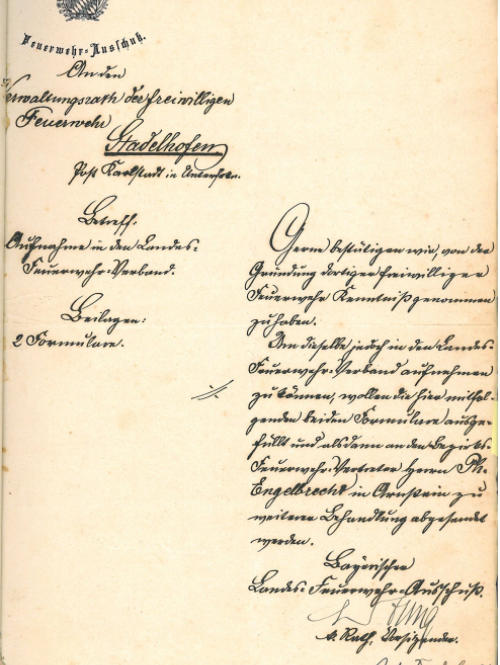 Feuerwehr-Ausschuß.
An den
Verwaltungsrath der freiwilligen
Feuerwehr
Stadelhofen
Post Karlstadt in Unterfrkn.
Betreff.
Aufnahme in den Landes-
Feuerwehr-Verband.
Beilagen:
2 Formulare.
Gerne bestätigen wir, von der
Gründung dortiger freiwilliger
Feuerwehr Kenntniß genommen
zu haben.
Um dieselbe jedoch in den Landes-
Feuerwehr-Verband aufnehmen
zu können, wollen die hier mitfol-
genden beiden Formulare ausge-
füllt und alsdann an den Bezirks-
Feuerwehr-Vertreter Herrn Ph.
Engelbrecht in Arnstein zu
weiterer Behandlung abgesendet
werden.
Bayerischer
Landes-Feuerwehr-Ausschuß.
k. Rath, Vorsitzender.